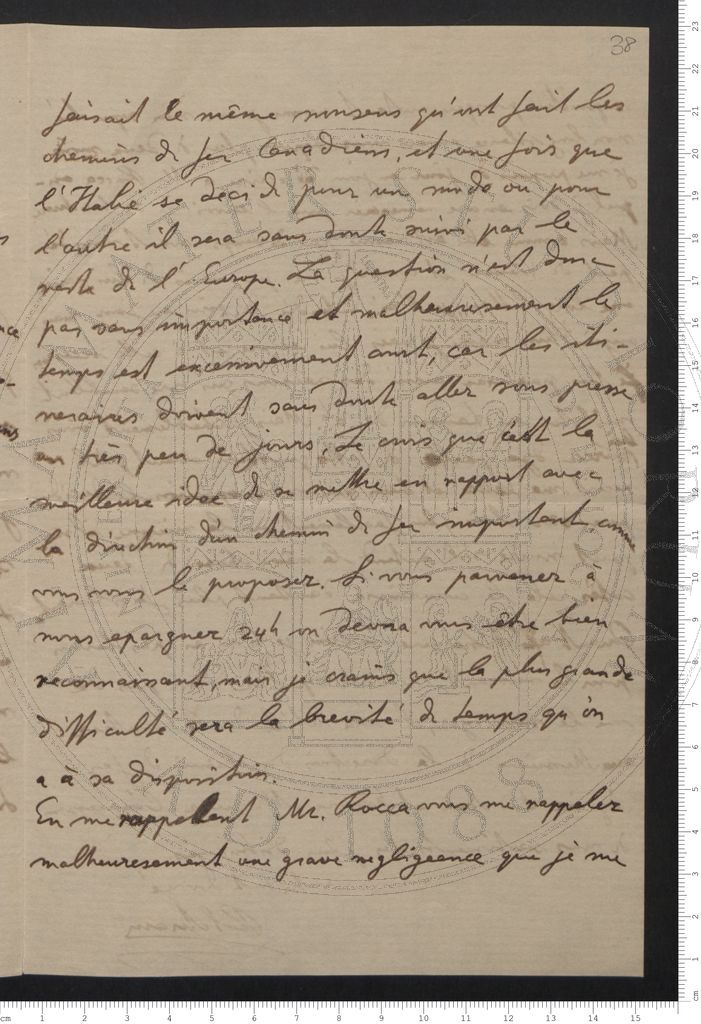 38
faisait le même nonsens qu'ont fait les
chemins de fer Canadiens, et une fois que
l'Italie se decide pour un mode ou pour
l'autre il sera sans doute suivi par le
reste de l'Europe. La question n'est donc
pas sans importance et malheureusement le
temps est excessivement court, car les iti-
neraires doivent sans doute aller sous presse
en très peu de jours. Je crois que c'est la
meilleure idee de se mettre en rapport avec
la direction d'un chemin de fer important, comme
vous vous le proposez. Si vous parvenez à
nous epargner 24h on devra vous être bien
reconnaissant, mais je crains que la plus grande
difficulté sera la brevité de temps qu'on
a à sa disposition.
En me rappelant Mr. Rocca vous me rappelez
malheuresement une grave negligeance que je me